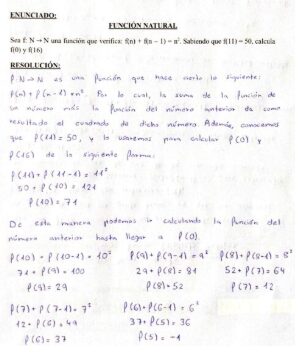 ENUNCIADO:
FUNCIÓN NATURAL
Sea f: N → N una función que verifica: f(n) + f(n – 1) = n². Sabiendo que f(11) = 50, calcula
f(0) y f(16)
RESOLUCIÓN:
f: N → N es una función que hace cierto lo siguiente:
f(n) + f(n-1) = n². Por lo cual, la suma de la función de
un número más la función del número anterior da como
resultado el cuadrado de dicho número. Además, conocemos
que f(11) = 50, y lo usaremos para calcular f(0) y
f(16) de la siguiente forma:
f(11) + f(11-1) = 11²
50 + f(10) = 121
f(10) = 71
De esta manera podemos ir calculando la función del
número anterior hasta llegar a f(0).
f(10) + f(10-1) = 10² f(9) + f(9-1) = 9² f(8) + f(8-1) = 8²
71 + f(9) = 100 29 + f(8) = 81 52 + f(7) = 64
f(9) = 29 f(8) = 52 f(7) = 12
f(7) + f(7-1) = 7² f(6) + f(6-1) = 6²
12 + f(6) = 49 37 + f(5) = 36
f(6) = 37 f(5) = -1